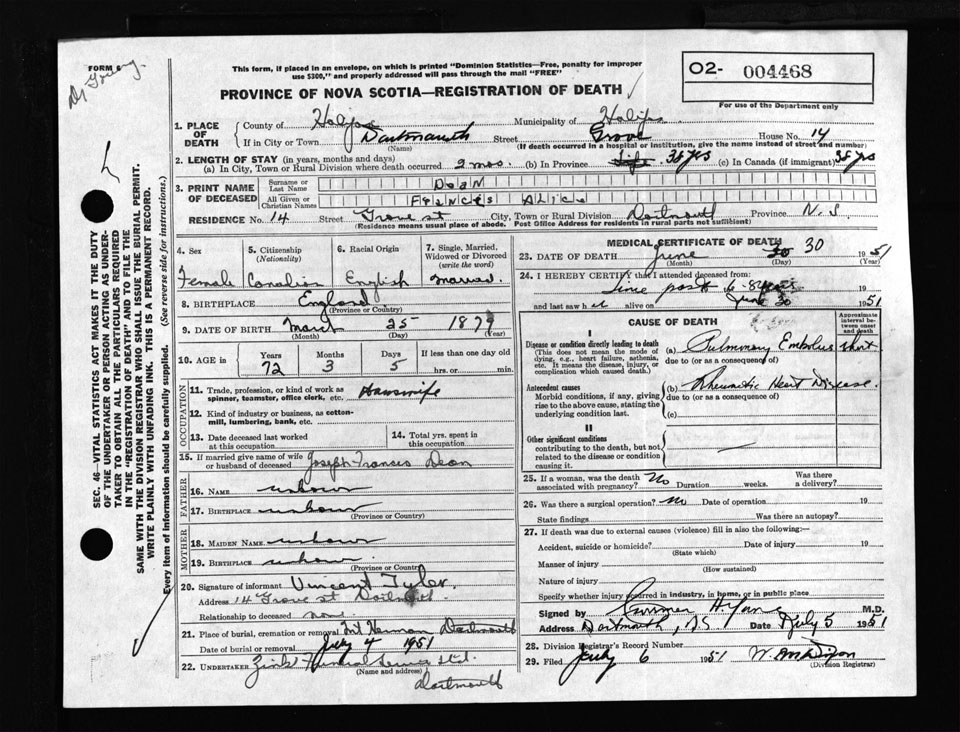 FORM 6
Dr Young.
This form, if placed in an envelope, on which is printed "Dominion Statistics—Free, penalty for improper
use $300," and properly addressed will pass through the mail "FREE"
PROVINCE OF NOVA SCOTIA—REGISTRATION OF DEATH
O2- 004468
For use of the Department only
SEC. 46—VITAL STATISTICS ACT MAKES IT THE DUTY
OF THE UNDERTAKER OR PERSON ACTING AS UNDER-
TAKER TO OBTAIN ALL THE PARTICULARS REQUIRED
IN THE "REGISTRATION OF DEATH" AND TO FILE THE
SAME WITH THE DIVISION REGISTRAR WHO SHALL ISSUE THE BURIAL PERMIT.
WRITE PLAINLY WITH UNFADING INK. THIS IS A PERMANENT RECORD.
Every item of information should be carefully supplied. (See reverse side for instructions.)
1. PLACE OF DEATH
County of Halifax Municipality of Halifax
If in City or Town Dartmouth Street Grove House No. 14
(Name) (If death occurred in a hospital or institution, give the name instead of street and number)
2. LENGTH OF STAY (in years, months and days)
(a) In City, Town or Rural Division where death occurred 2 mos. (b) In Province Life 38 yrs (c) In Canada (if immigrant) 38 yrs
3. PRINT NAME OF DECEASED
Surname or Last Name DEAN
All Given or Christian Names FRANCES ALICE
RESIDENCE No. 14 Street Grove st City, Town or Rural Division Dartmouth Province N.S.
(Residence means usual place of abode. Post Office Address for residents in rural parts not sufficient)
4. Sex 5. Citizenship (Nationality) 6. Racial Origin 7. Single, Married, Widowed or Divorced (write the word)
Female Canadian English Married.
8. BIRTHPLACE England
(Province or Country)
9. DATE OF BIRTH March 25 1879
(Month) (Day) (Year)
10. AGE in Years Months Days If less than one day old
72 3 5 hrs. or min.
OCCUPATION
11. Trade, profession, or kind of work as
spinner, teamster, office clerk, etc. Housewife
12. Kind of industry or business, as cotton-
mill, lumbering, bank, etc.
13. Date deceased last worked
at this occupation
14. Total yrs. spent in
this occupation
15. If married give name of wife
or husband of deceased Joseph Frances Dean
FATHER
16. NAME unknown
17. BIRTHPLACE unknown
(Province or Country)
MOTHER
18. MAIDEN NAME unknown
19. BIRTHPLACE unknown
(Province or Country)
20. Signature of informant Vincent Tyler.
Address 14 Grove st Dartmouth.
Relationship to deceased none.
21. Place of burial, cremation or removal Mt Herman Dartmouth
Date of burial or removal July 4 1951
22. UNDERTAKER Zink's Funeral Service Ltd.
(Name and address)
Dartmouth
MEDICAL CERTIFICATE OF DEATH
23. DATE OF DEATH June 30 30 1951
(Month) (Day) (Year)
24. I HEREBY CERTIFY that I attended deceased from:
Since past 6-8 years 19
and last saw h er alive on June 30 1951
CAUSE OF DEATH
Approximate interval between onset and death
I
Disease or condition directly leading to death
(This does not mean the mode of
dying, e.g., heart failure, asthenia,
etc. It means the disease, injury, or
complication which caused death.)
(a) Pulmonary Embolus short
due to (or as a consequence of)
Antecedent causes
Morbid conditions, if any, giving
rise to the above cause, stating the
underlying condition last.
(b) Rheumatic Heart Disease.
due to (or as a consequence of)
(c)
II
Other significant conditions
contributing to the death, but not
related to the disease or condition
causing it.
25. If a woman, was the death
associated with pregnancy? No Duration weeks. Was there
a delivery?
26. Was there a surgical operation? No Date of operation 19
State findings Was there an autopsy?
27. If death was due to external causes (violence) fill in also the following:—
Accident, suicide or homicide? Date of injury 19
(State which)
Manner of injury
(How sustained)
Nature of injury
Specify whether injury occurred in industry, in home, or in public place
Signed by M.D.
Address Dartmouth, NS Date July 5 1951
28. Division Registrar's Record Number
29. Filed July 6 1951
(Division Registrar)